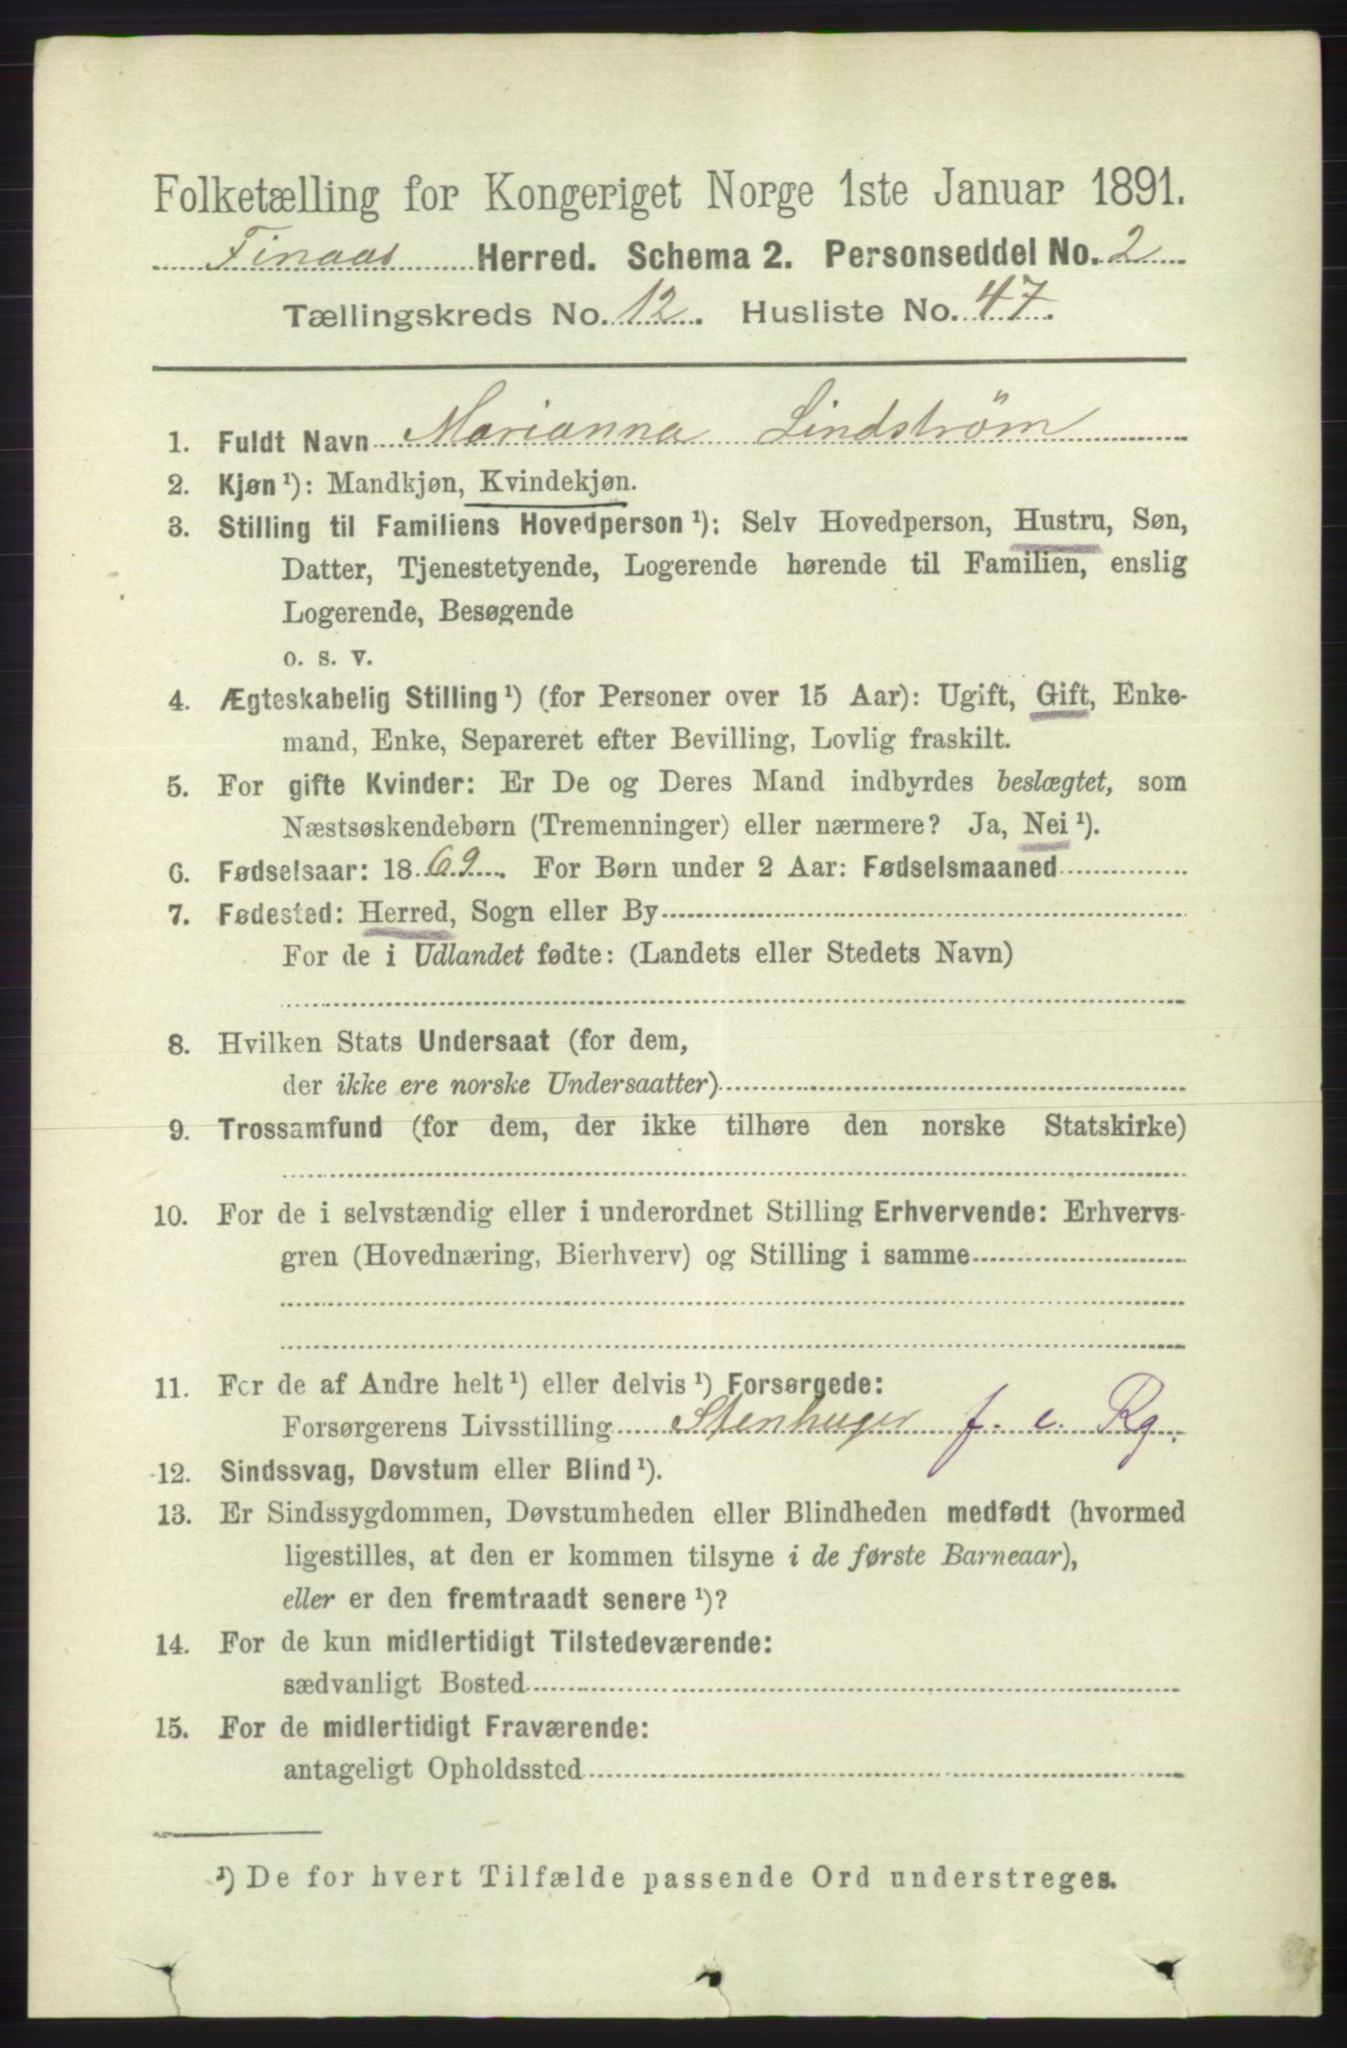 Folketælling for Kongeriget Norge 1ste Januar 1891.
Finaas Herred. Schema 2. Personseddel No. 2
Tællingskreds No. 12. Husliste No. 47.
1. Fuldt Navn Marianna Lindstrøm
2. Kjøn¹): Mandkjøn, Kvindekjøn.
3. Stilling til Familiens Hovedperson¹): Selv Hovedperson, Hustru, Søn,
Datter, Tjenestetyende, Logerende hørende til Familien, enslig
Logerende, Besøgende
o. s. v.
4. Ægteskabelig Stilling¹) (for Personer over 15 Aar): Ugift, Gift, Enke-
mand, Enke, Separeret efter Bevilling, Lovlig fraskilt.
5. For gifte Kvinder: Er De og Deres Mand indbyrdes beslægtet, som
Næstsøskendebørn (Tremenninger) eller nærmere? Ja, Nei¹).
6. Fødselsaar: 1869. For Børn under 2 Aar: Fødselsmaaned
7. Fødested: Herred, Sogn eller By
For de i Udlandet fødte: (Landets eller Stedets Navn)
8. Hvilken Stats Undersaat (for dem,
der ikke ere norske Undersaatter)
9. Trossamfund (for dem, der ikke tilhøre den norske Statskirke)
10. For de i selvstændig eller i underordnet Stilling Erhvervende: Erhvervs-
gren (Hovednæring, Bierhverv) og Stilling i samme
11. For de af Andre helt¹) eller delvis¹) Forsørgede:
Forsørgerens Livsstilling Stenhuger f. e. Rg.
12. Sindssvag, Døvstum eller Blind¹).
13. Er Sindssygdommen, Døvstumheden eller Blindheden medfødt (hvormed
ligestilles, at den er kommen tilsyne i de første Barneaar),
eller er den fremtraadt senere¹)?
14. For de kun midlertidigt Tilstedeværende:
sædvanligt Bosted
15. For de midlertidigt Fraværende:
antageligt Opholdssted
¹) De for hvert Tilfælde passende Ord understreges.